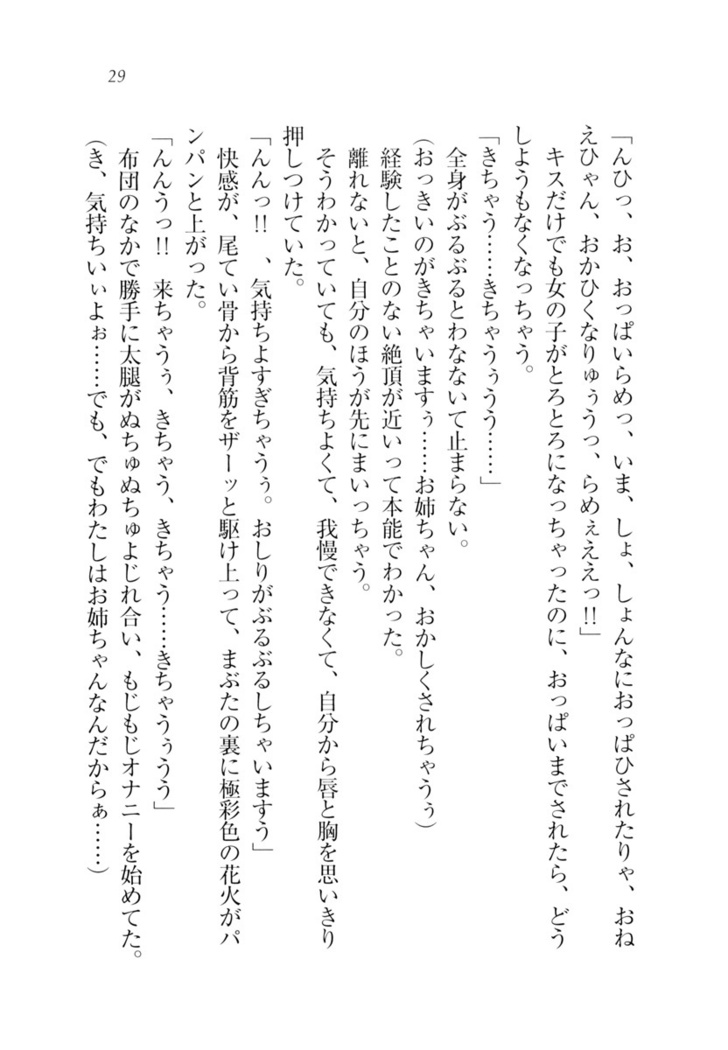 29
「んひっ、お、おっぱいらめっ、いま、しょ、しょんなにおっぱひされたりゃ、おね
えひゃん、おかひくなりゅぅうっ、らめぇええっ!!」
キスだけでも女の子がとろとろになっちゃったのに、おっぱいまでされたら、どう
しようもなくなっちゃう。
「きちゃう……きちゃうぅうう……」
全身がぶるぶるとわなないて止まらない。
(おっきいのがきちゃいますぅ……お姉ちゃん、おかしくされちゃうぅ)
経験したことのない絶頂が近いって本能でわかった。
離れないと、自分のほうが先にまいっちゃう。
そうわかっていても、気持ちよくて、我慢できなくて、自分から唇と胸を思いきり
押しつけていた。
「んんっ!! 、気持ちよすぎちゃうぅ。おしりがぶるぶるしちゃいますう」
快感が、尾てい骨から背筋をザーッと駆け上って、まぶたの裏に極彩色の花火がパ
ンパンと上がった。
「んんうっ!! 来ちゃうぅ、きちゃう、きちゃう……きちゃうぅうう」
布団のなかで勝手に太腿がぬちゅぬちゅよじれ合い、もじもじオナニーを始めてた。
(き、気持ちいぃよぉ……でも、でもわたしはお姉ちゃんなんだからぁ……)